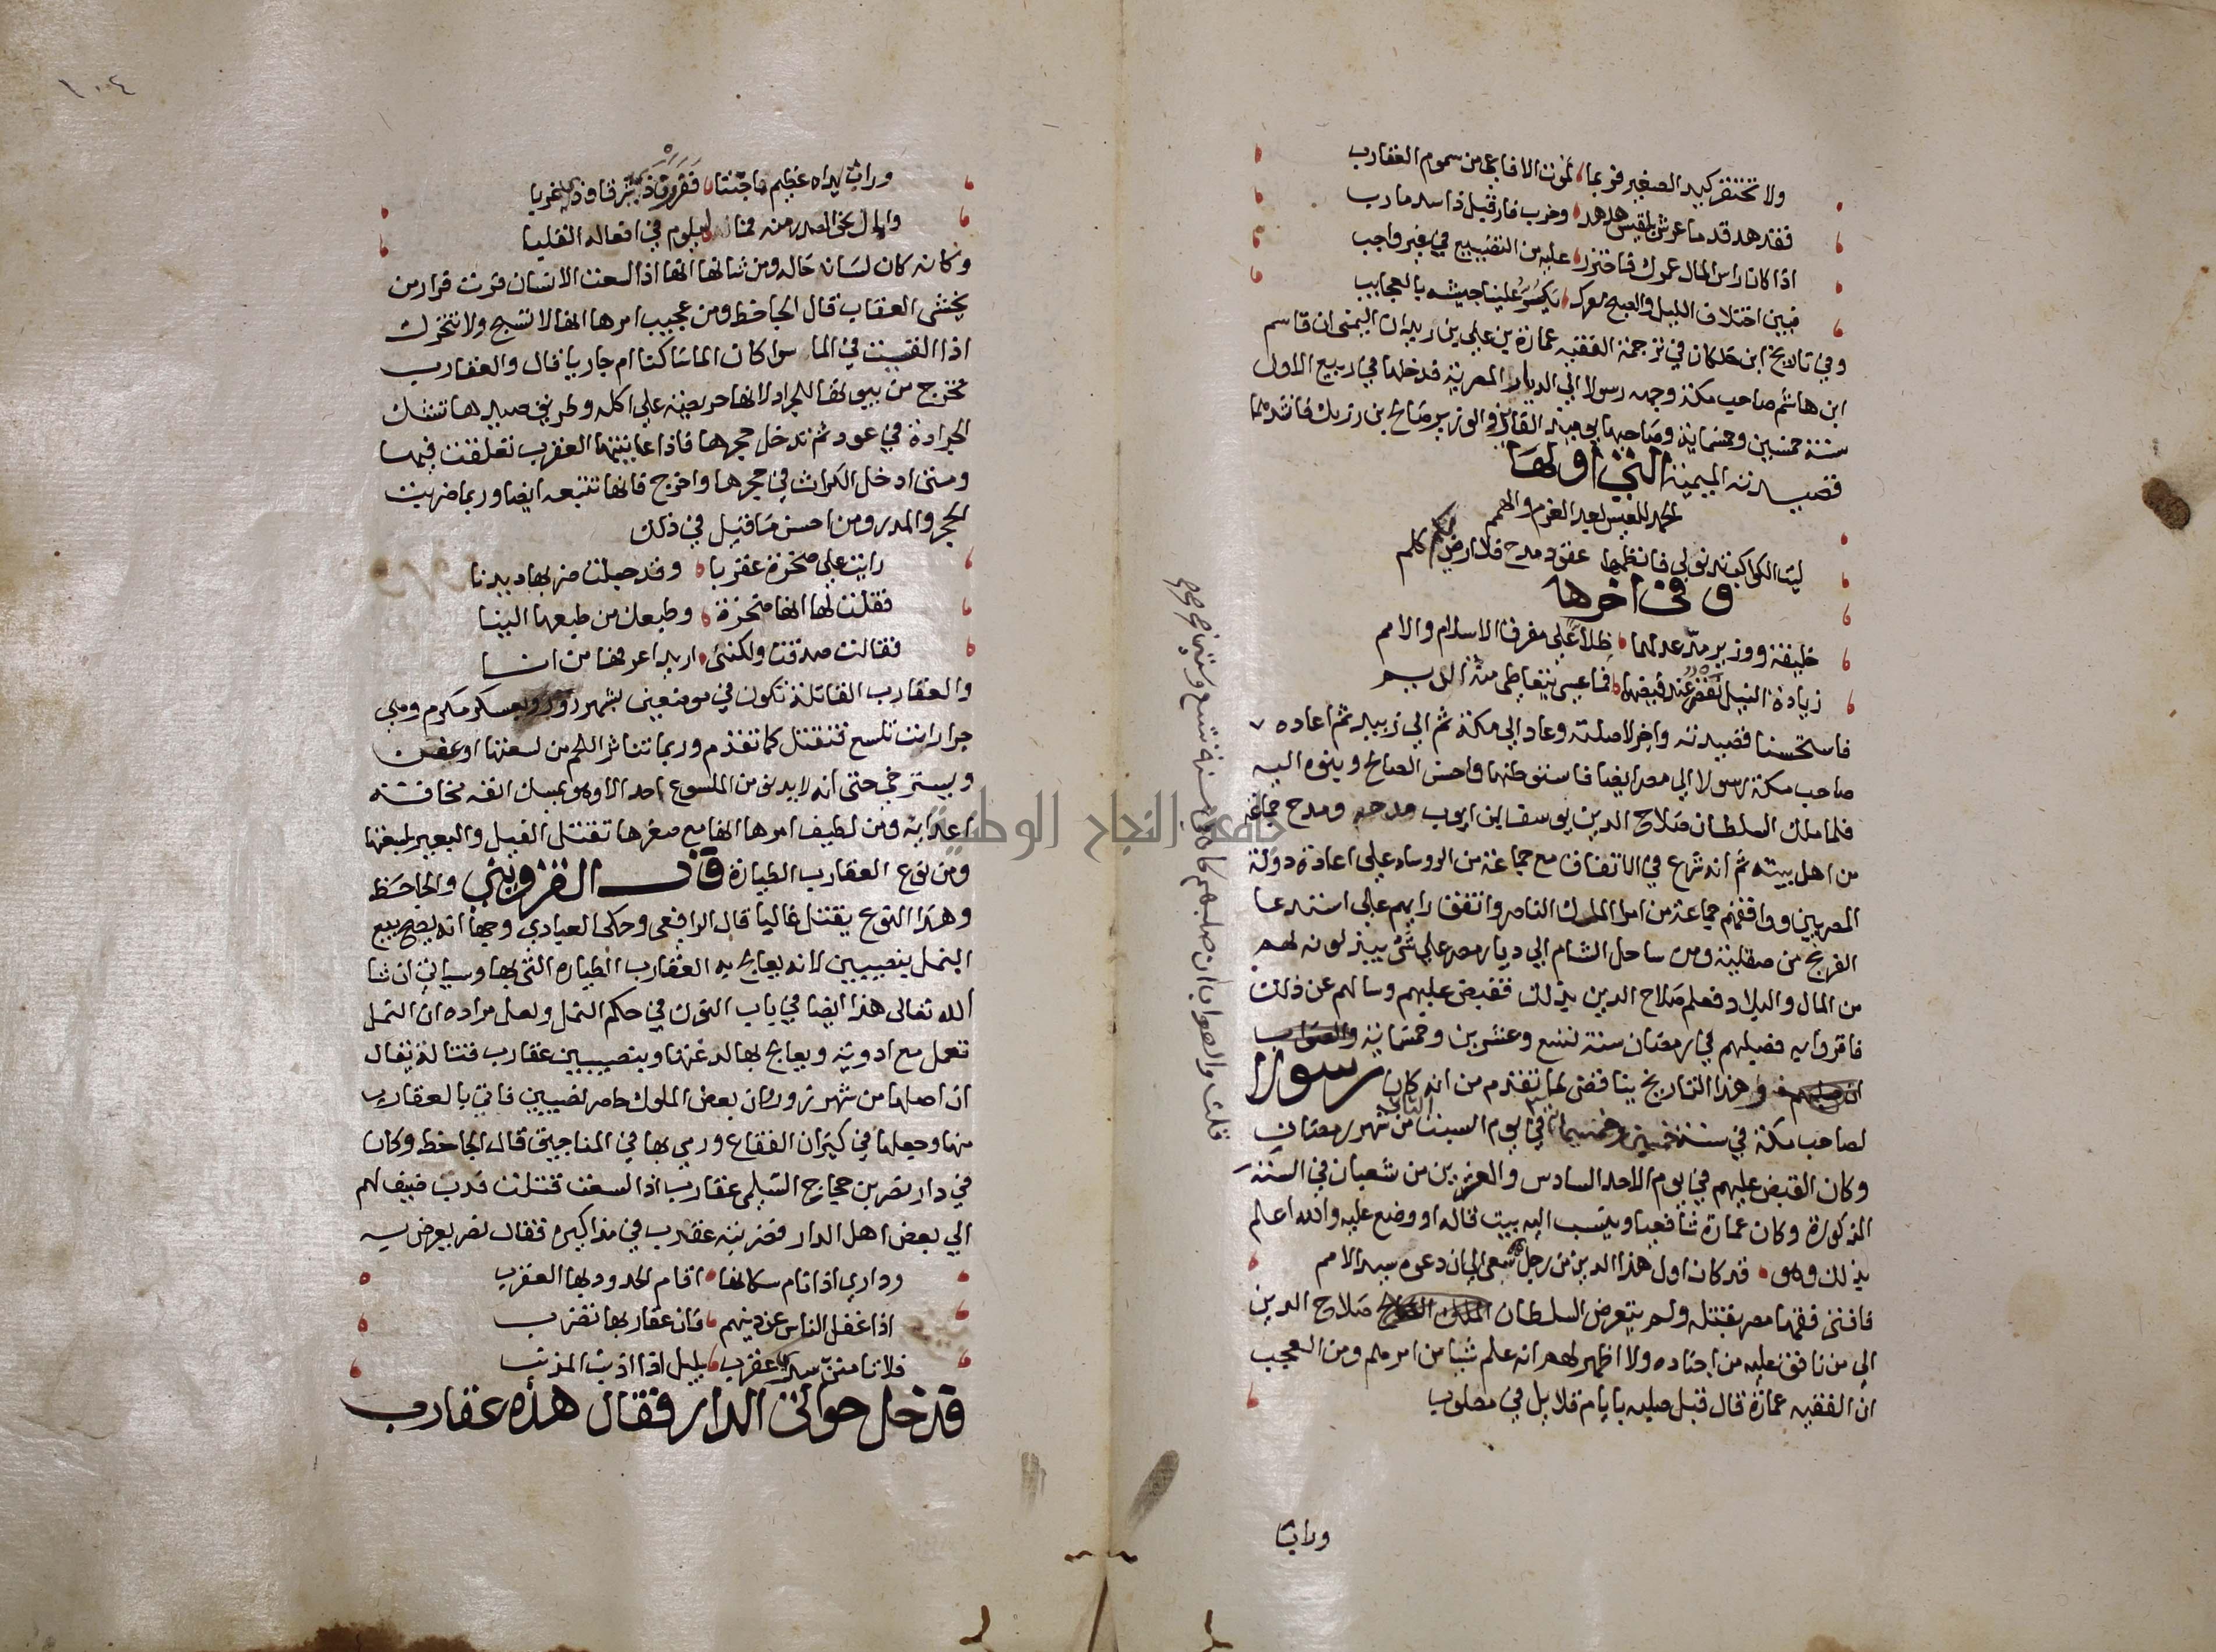 ولا تحتقر كيد الصغير فربما تموت الافاعي من سموم العقارب
فقد هد قدما عرش بلقيس هدهد وخرب فار قبل ذا سد مارب
اذا كان راس المال عمرك فاحترز عليه من التضييع في غير واجب
فبين اختلاف الليل والصبح معرك يكر علينا جيشه بالعجايب
وفي تاريخ ابن خلكان في ترجمة الفقيه عمارة بن علي بن زيدان اليمني ان قاسم
ابن هاشم صاحب مكة وجهه رسولا الي الديار المصرية فدخلها في ربيع الاول
سنة خمسين وخمسماية وصاحبها يوميذ الفايز والوزير صالح بن رزيك فانشدهما
قصيدته الميمية التي اولها
الحمد للعيس بعد العزم والهمم
ليت الكواكب تدنو لي فانظمها عقود مدح فلا ارضي لكم كلم
وفي اخرها
خليفة ووزير مد عدلهما ظلا علي مفرق الاسلام والامم
زيادة النيل نقص عند فيضهما فما عسي يتعاطي منة الديم
فاستحسنا قصيدته واجزلا صلته وعاد الي مكة ثم الي زبيد ثم اعاده
صاحب مكة رسولا الي مصر ايضا فاستوطنها واحسن الصالح وبنوه اليه
فلما ملك السلطان صلاح الدين يوسف بن ايوب مدحه ومدح جماعة
من اهل بيته ثم انه شرع في الاتفاق مع جماعة من الروساء علي اعادة دولة
المصريين ووافقهم جماعة من امرا الملك الناصر واتفق رايهم علي استدعا
الفرنج من صقلية ومن ساحل الشام الي ديار مصر علي شي يبذلونه لهم
من المال والبلاد فعلم صلاح الدين بذلك فقبض عليهم وسالهم عن ذلك
فاقروا به فصلبهم في رمضان سنة تسع وعشرين وخمسماية والصواب
ان صلبهم وهذا التاريخ يناقض لما تقدم من انه كان رسولا
لصاحب مكة في سنة خمسين وخمسماية في يوم السبت الثاني من شهر رمضان
وكان القبض عليهم في يوم الاحد السادس والعشرين من شعبان في السنة
المذكورة وكان عمارة شافعيا وينسب اليه بيت قاله او وضع عليه والله اعلم
بذلك وهو قد كان اول هذا الدين من رجل سعي الي ان دعوه سيد الامم
فافتي فقها مصر بقتله ولم يتعرض السلطان الملك صلاح الدين
الي من نافق عليه من اجناده ولا اظهر لهم انه علم شيا من امرهم ومن العجب
ان الفقيه عمارة قال قبل صلبه بايام قلايل في مصلوب
ورات
قلت والصواب ان صلبهم كان في سنة تسع وستين
١٠٤
ورات يداه عظيم ما جنتا ففررن ذي شرقا وذي غربا
وامال نحو الصدر منه فما ليلوم في افعاله القلبا
وكانه كان لسان حاله ومن شانها انها اذا لسعت الانسان فرت فرار من
يخشي العقاب قال الجاحظ ومن عجيب امرها انها لا تسبح ولا تتحرك
اذا القيت في الما سوا كان الما ساكنا ام جاريا قال والعقارب
تخرج من بيوتها للجراد لانها حريصة علي اكله وطريق صيدها تشك
الجرادة في عود ثم تدخل حجرها فاذا عاينتها العقرب تعلقت فيها
ومتي ادخل الكراث في حجرها واخرج فانها تتبعه ايضا وربما ضربت
الحجر والمدر ومن احسن ما قيل في ذلك
رايت علي صخرة عقربا وقد جعلت ضربها ديدنا
فقلت لها انها صخرة وطبعك من طبعها الينا
فقالت صدقت ولكنني اريد اعرفها من انا
والعقارب القاتلة تكون في موضعين بشهرزور وبعسكر مكرم وهي
جرارات تلسع فتقتل كما تقدم وربما تناثر اللحم من لسعتها او عفن
ويسترخي حتي انه لا يدنو من الملسوع احد الا وهو يمسك انفه مخافة
اعدايه ومن لطيف امرها انها مع صغرها تقتل الفيل والبعير بلسعتها
ومن نوع العقارب الطيارة قال القزويني والجاحظ
وهذا النوع يقتل غالبا قال الرافعي وحكي العبادي وجها انه يصح بيع
النمل بنصيبين لانه يعالج به العقارب الطيارة التي بها وسياتي ان شا
الله تعالي هذا ايضا في باب النون في حكم النمل ولعل مراده ان النمل
تعمل مع ادوية ويعالج بها لدغتها وبنصيبين عقارب قتالة يقال
ان اصلها من شهرزور وان بعض الملوك حاصر نصيبين فاتي بالعقارب
منها وجعلها في كيزان الفقاع ورمي بها في المناجيق قال الجاحظ وكان
في دار نصر بن حجاج السلمي عقارب اذا لسعت قتلت فدب ضيف لهم
الي بعض اهل الدار فضربته عقرب في مذاكيره فقال نصر يعرض به
وداري اذا نام سكانها اقام الحدود بها العقرب
اذا غفل الناس عن دينهم فان عقاربها تضرب
فلا تامنن سري عقرب بليل اذا اذنب المذنب
قد خل حوالي الدار فقال هذه عقارب